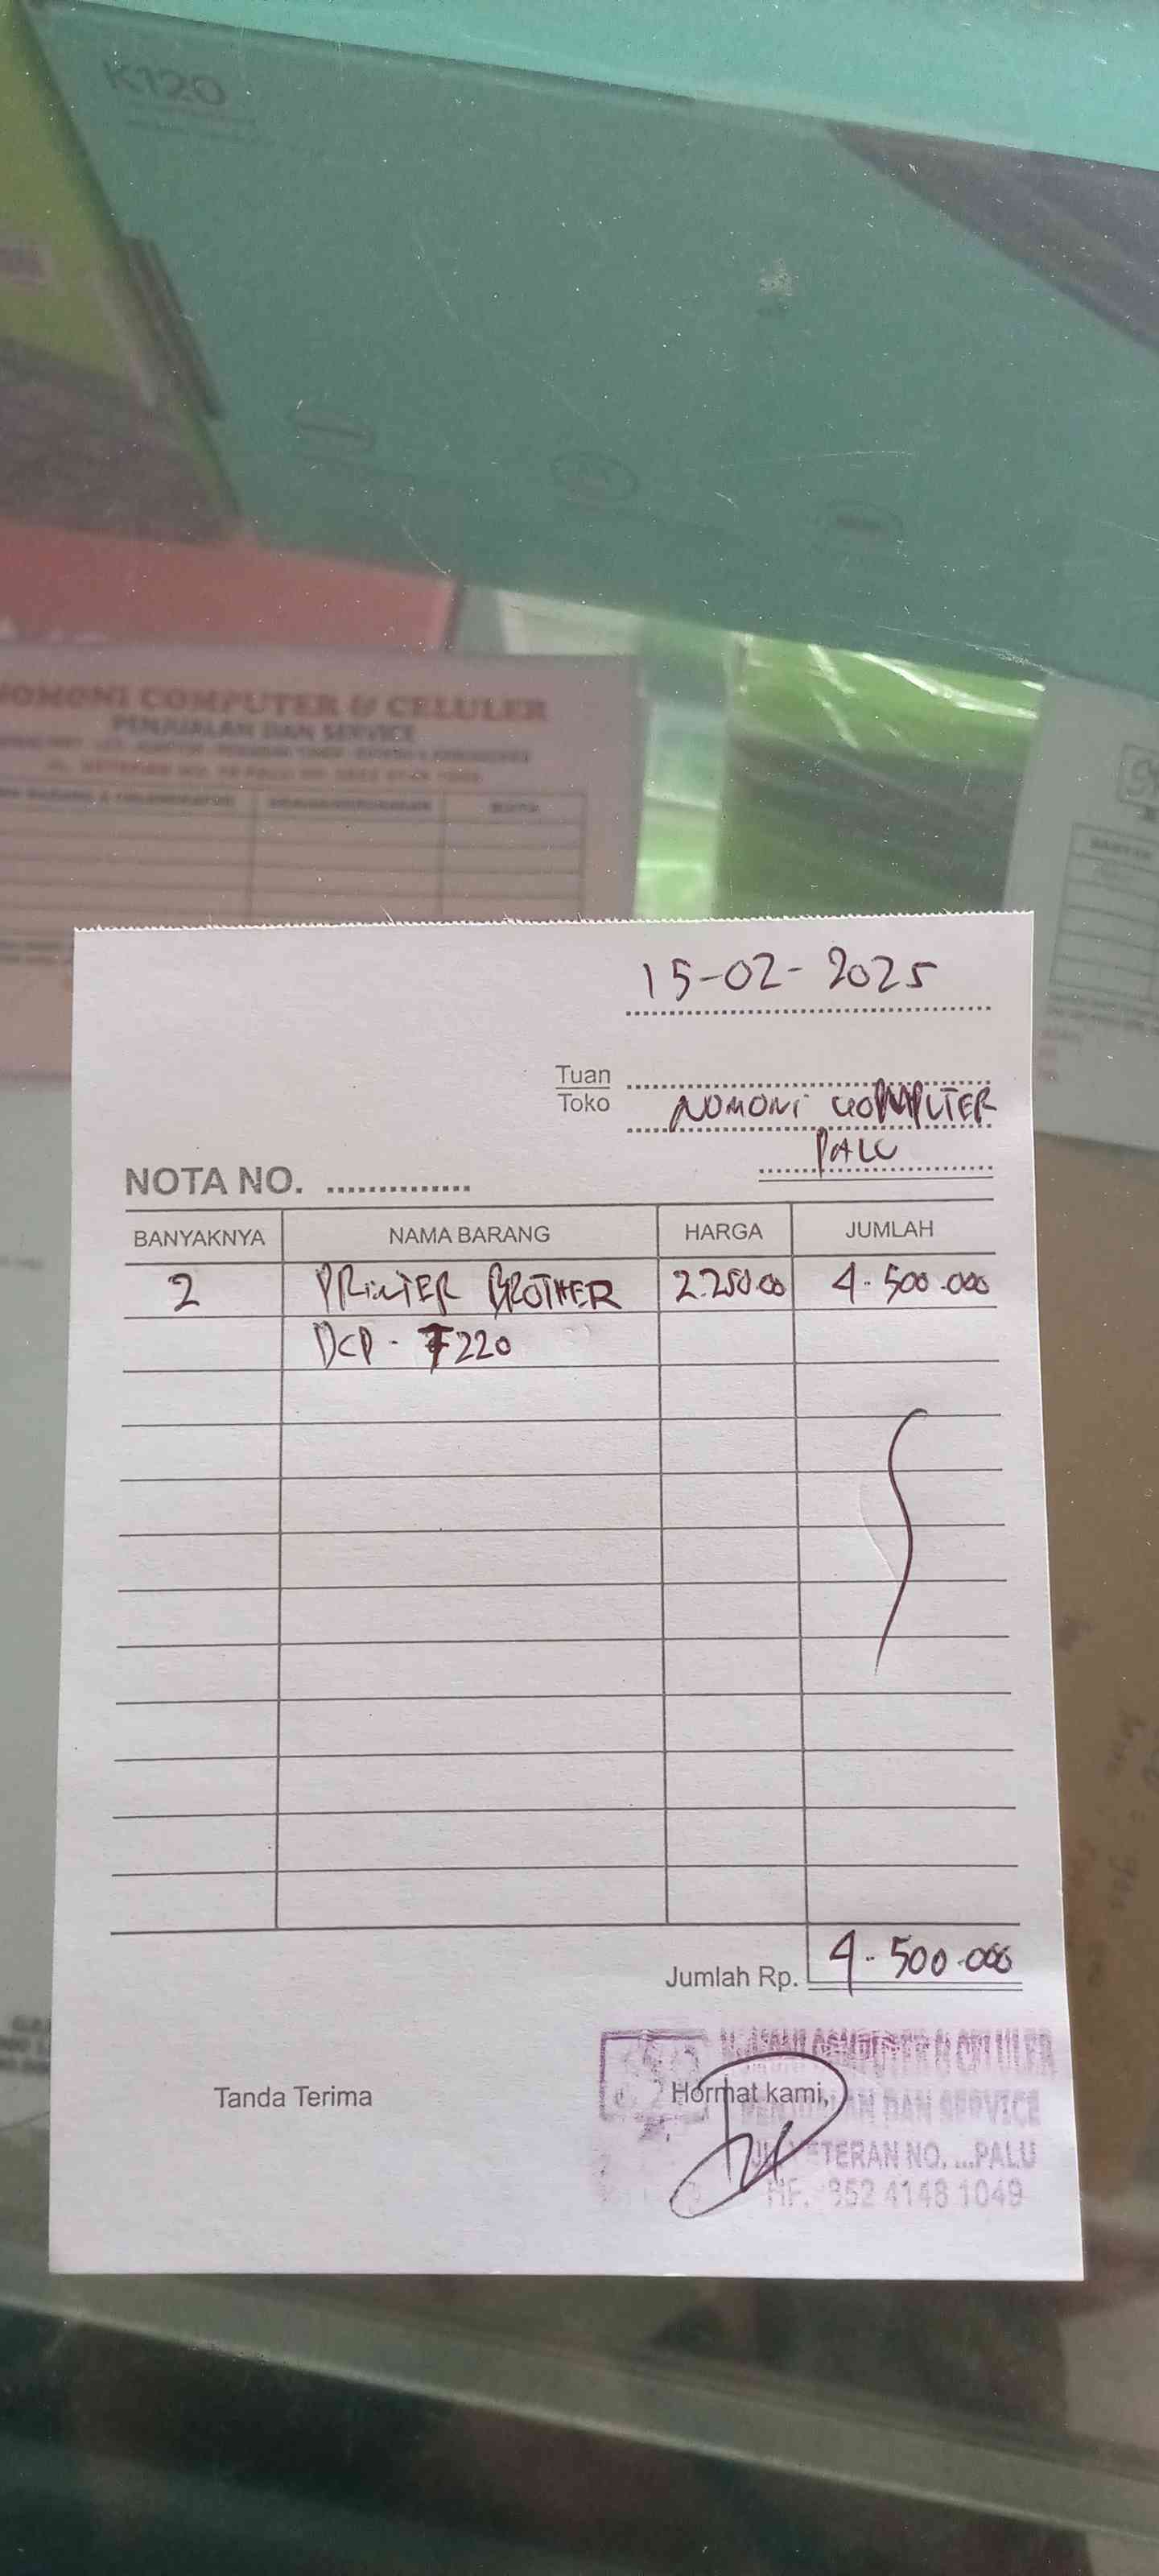 K120
NOMONI COMPUTER & CELULER
PENJUALAN DAN SERVICE
15-02-2025
Tuan
Toko
NOMONI KOMPUTER
PALU
NOTA NO. ..............
BANYAKNYA NAMA BARANG HARGA JUMLAH
2 PRINTER BROTHER 2.250.00 4.500.000
DCP - T220
Jumlah Rp. 4.500.000
Tanda Terima Hormat kami,
COMPUTER & CELULER
DAN SERVICE
VETERAN NO. ...PALU
HP. 852 4148 1049